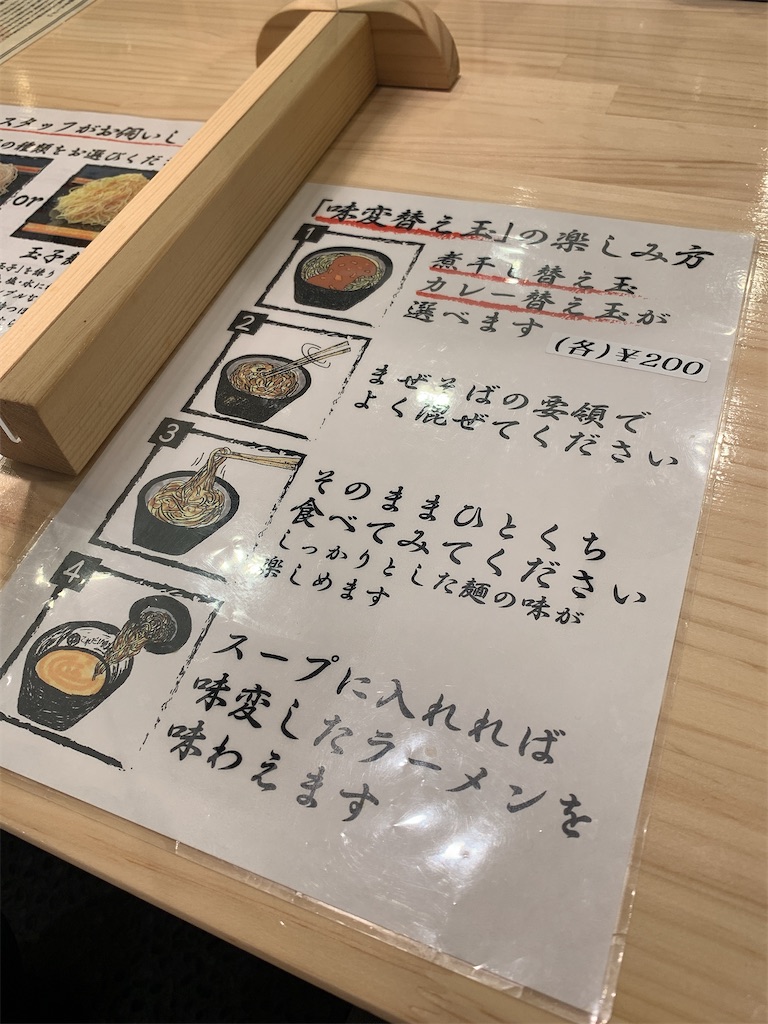 スタッフがお伺いし
の種類をお選びくだ
or
玉子麺
「味変替え玉」の楽しみ方
1
煮干し替え玉
カレー替え玉が
選べます
(各)¥200
2
まぜそばの要領で
よく混ぜてください
3
そのままひとくち
食べてみてください
しっかりとした麺の味が
楽しめます
4
スープに入れれば
味変したラーメンを
味わえます